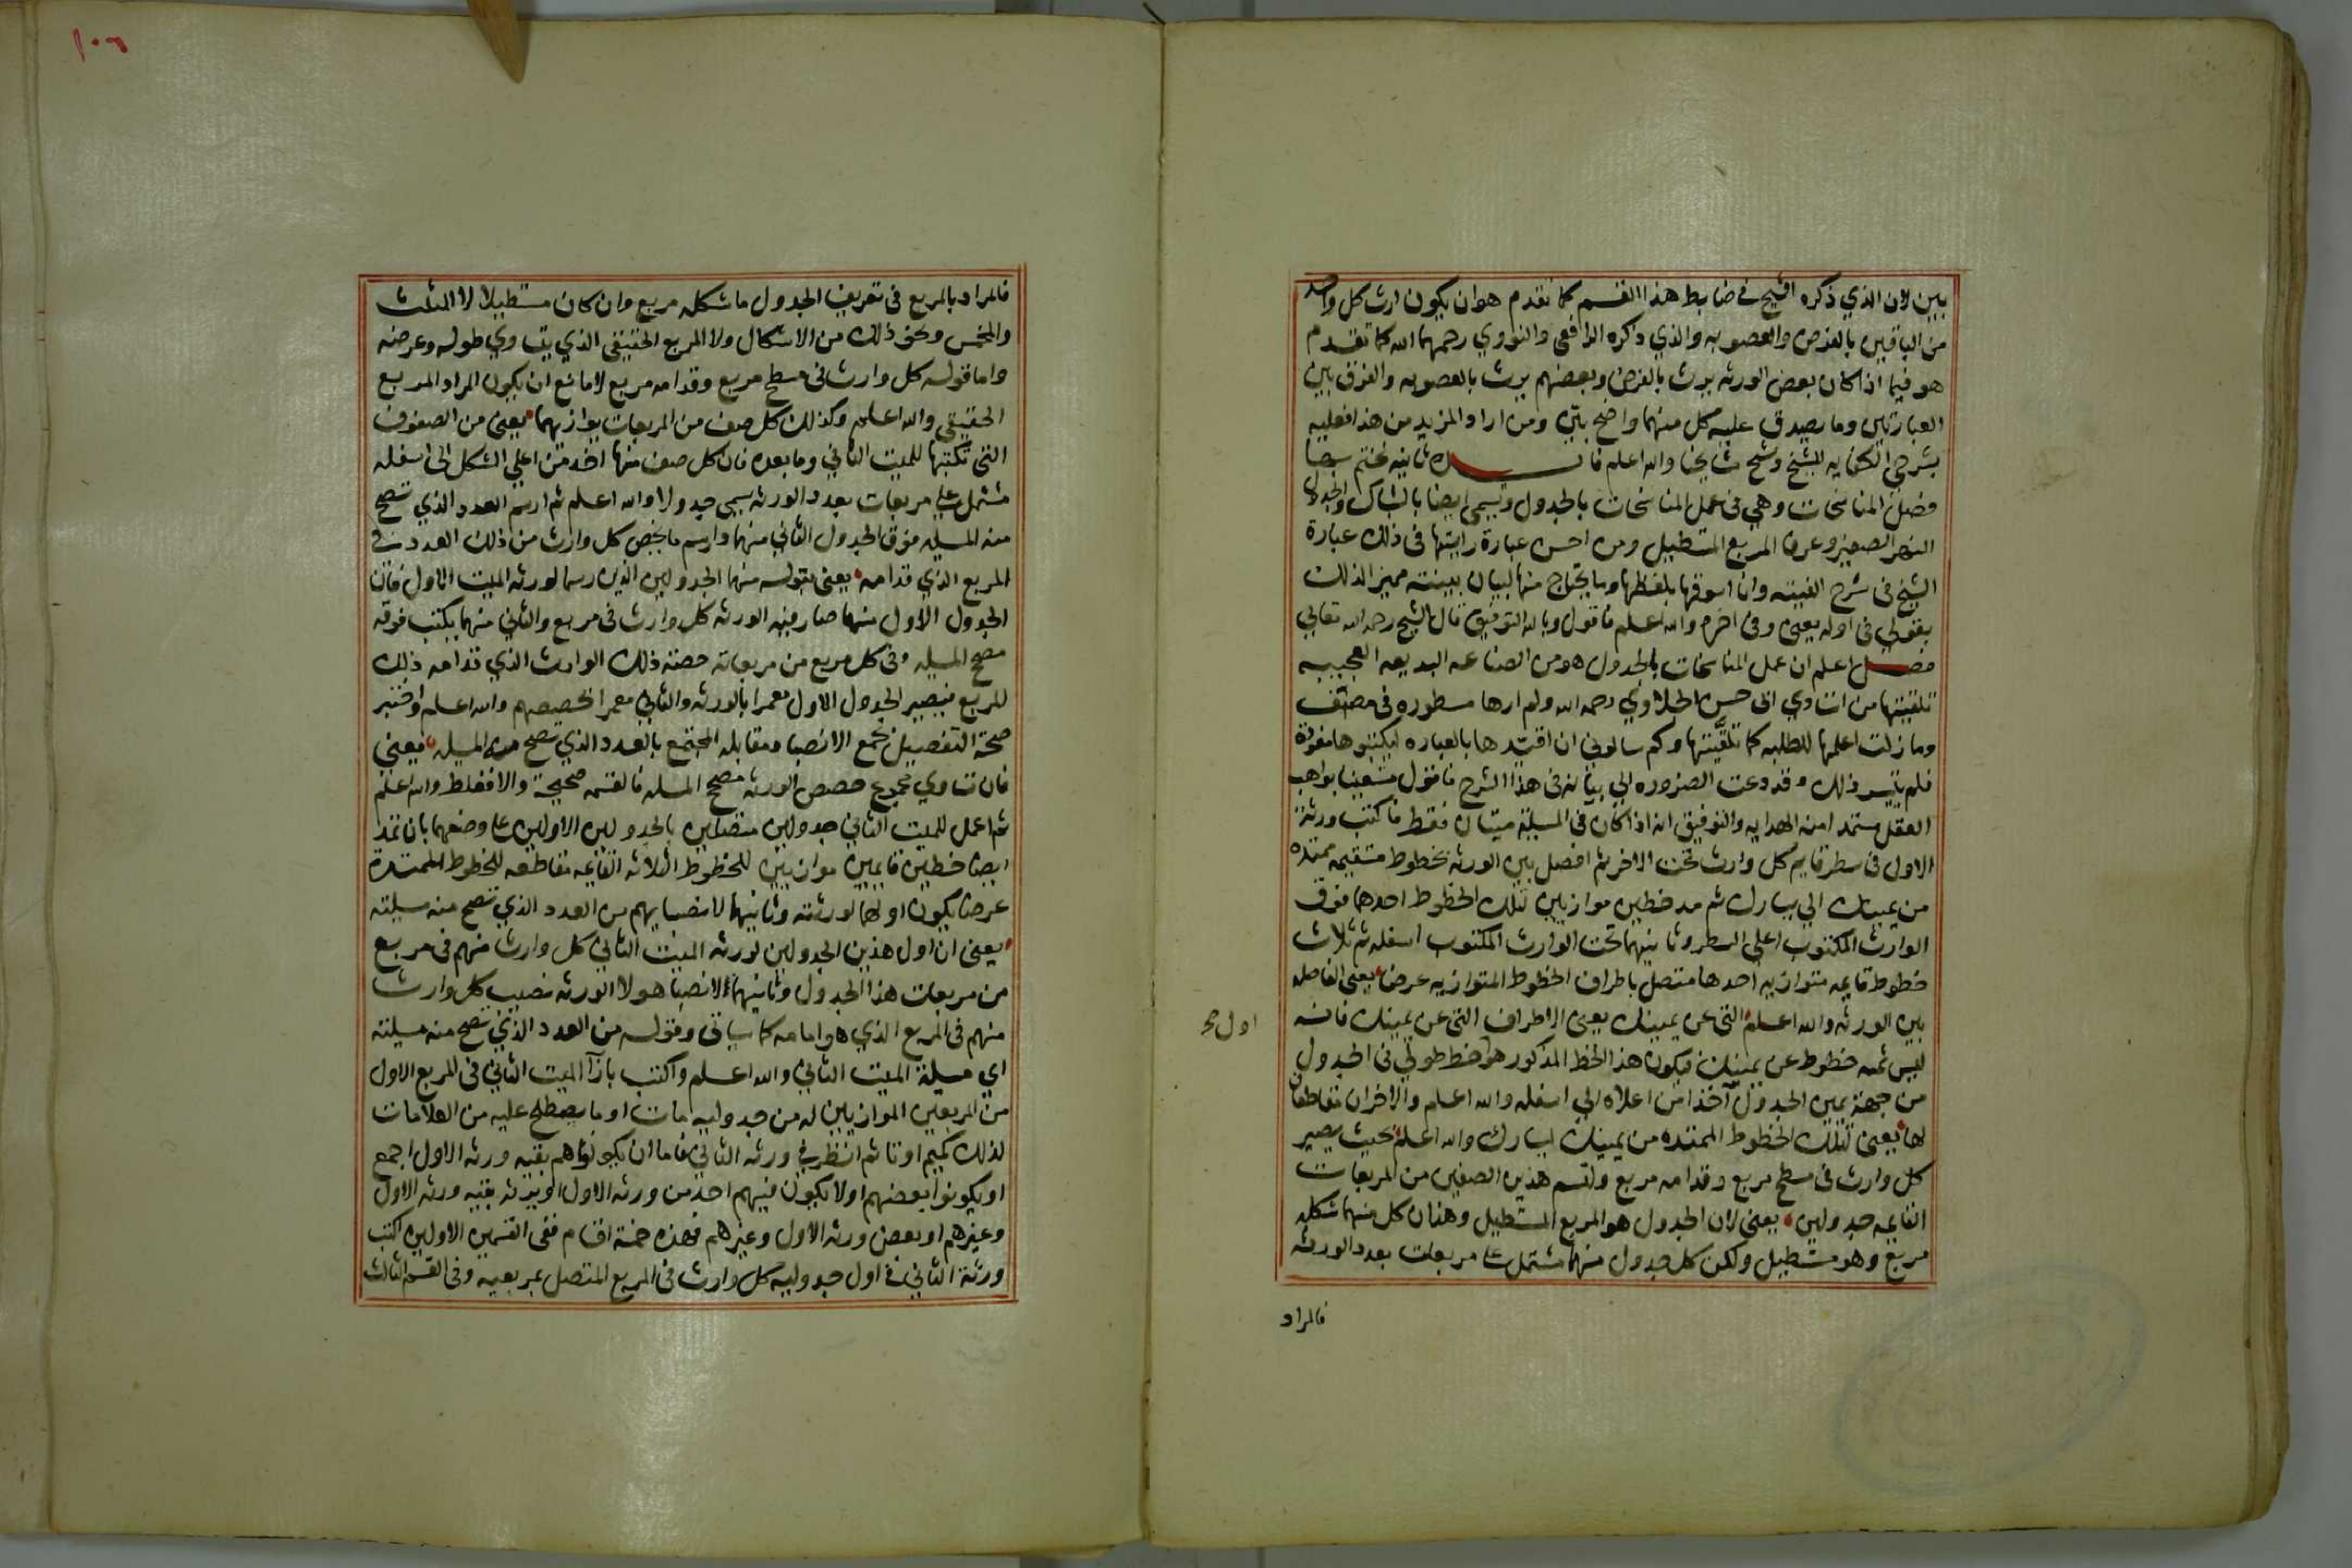 بين لان الذي ذكره الشيخ في ضابط هذا القسم كما تقدم هو ان يكون ارث كل واحد
من الباقين بالفرض والعصوبه والذي ذكره الرافعي والنووي رحمهما الله كما تقدم
هو فيما اذا كان بعض الورثه يرث بالفرض وبعضهم يرث بالعصوبه والفرق بين
العبارتين وما يصدق عليه كل منهما واضح بيّن ومن اراد المزيد من هذا فعليه
بشرحي الكفايه للشيخ وشيخ مشايخنا والله اعلم فائـــدة ثانيه نختم بها
فصل المناسخات وهي في عمل المناسخات بالجدول ويسمى ايضا بالشباك والجدول
النهر الصغير وعرفا المربع المستطيل ومن احسن عبارة رايتها في ذلك عبارة
الشيخ في شرح الفيته وانا اسوقها بلفظها وما يحتاج منها لبيان بينته مميزا لذلك
بقولي في اوله يعني وفي اخره والله اعلم فاقول وبالله التوفيق قال الشيخ رحمه الله تعالى
فصــل اعلم ان عمل المناسخات بالجدول هو من الصناعه البديعه العجيبه
تلقيتها من استاذي ابي حسن الجلاوي رحمه الله ولم ارها مسطوره في مصنّف
وما زلت اعلمها للطلبه كما تلقّيتها وكم سالوني ان اقيّدها بالعباره ليكتبوها مفردة
فلم يتيسر ذلك وقد دعت الضروره الي بيانه في هذا الشرح فاقول مستعينا بواهب
العقل مستمدا منه الهدايه والتوفيق انه اذا كان في المسيلة ميتان فقط فاكتب ورثة
الاول في سطر قايم كل وارث تحت الاخر ثم افصل بين الورثه بخطوط مستقيمه ممتده
من يمينك الي يسارك ثم مد خطين موازيين لتلك الخطوط احدهما فوق
الوارث المكتوب اعلي السطر وثانيهما تحت الوارث المكتوب اسفله ثم ثلاث
خطوط قايمه متوازيه احدها متصل باطراف الخطوط المتوازيه عرضا يعني الفاصله
بين الورثه والله اعلم التي عن يمينك يعني الاطراف التي عن يمينك فانه
اول صح
ليس ثمه خطوط عن يمينك فيكون هذا الخط المذكور هو خط طولي في الجدول
من جهة يمين الجدول آخذا من اعلاه الي اسفله والله اعلم والاخران متقاطعان
لها يعني لتلك الخطوط الممتده من يمينك ليسارك والله اعلم بحيث يصير
كل وارث في مسطح مربع وقدامه مربع ولتسم هذين الصفين من المربعات
القايمه جدولين يعني لان الجدول هو المربع المستطيل وهذان كل منهما شكله
مربع وهو مستطيل ولكن كل جدول منهما مشتمل على مربعات بعدد الورثه
فالمراد
١٠٦
فالمراد بالمربع في تعريف الجدول ما شكله مربع وان كان مستطيلا لا المثلث
والمخمس ونحو ذلك من الاشكال ولا المربع الحقيقي الذي يتساوي طوله وعرضه
واما قوله كل وارث في مسطح مربع وقدامه مربع لا مانع ان يكون المراد المربع
الحقيقي والله اعلم وكذلك كل صف من المربعات يوازيهما يعني من الصفوف
التي تكتبها للميت الثاني وما بعده فان كل صف منها اخذ من اعلي الشكل الى اسفله
مشتمل على مربعات بعدد الورثه يسمى جدولا والله اعلم ثم ارسم العدد الذي تصح
منه المسيله فوق الجدول الثاني منهما وارسم ما يخص كل وارث من ذلك العدد في
المربع الذي قدامه يعني بقوله منهما الجدولين الذين رسما لورثه الميت الاول فان
الجدول الاول منهما صار فيه الورثه كل وارث في مربع والثاني منهما يكتب فوقه
مصح المسيله وفي كل مربع من مربعاته حصته ذلك الوارث الذي قدامه ذلك
المربع فيصير الجدول الاول معمرا بالورثه والثاني معمرا بحصصهم والله اعلم واختبر
صحة التفصيل بجمع الانصبا ومقابله المجتمع بالعدد الذي تصح منه المسيله فيعني
فان تساوي مجموع حصص الورثه مصح المسله فالقسمه صحيحة والا فغلط والله اعلم
ثم اعمل للميت الثاني جدولين متصلين بالجدولين الاولين على وضعهما بان تمد
ايضا خطين قايمين موازيين للخطوط الثلاثه القايمه مقاطعه للخطوط الممتدة
عرضا يكون اولهما لورثته وثانيهما لانصبايهم من العدد الذي تصح منه مسيلته
يعني ان اول هذين الجدولين لورثه الميت الثاني كل وارث منهم في مربع
من مربعات هذا الجدول وثانيهما لانصبا هولا الورثه نصيب كل وارث
منهم في المربع الذي هو امامه كما سياتي وقوله من العدد الذي تصح منه مسيلته
اي مسيلة الميت الثاني والله اعلم واكتب بازآ الميت الثاني في المربع الاول
من المربعين الموازيين له من جدوليه مات او ما يصطلح عليه من العلامات
لذلك كميم او تا ثم انظر في ورثه الثاني فاما ان يكونوا هم بقيه ورثه الاول اجمع
او يكونوا بعضهم او لا يكون فيهم احد من ورثه الاول او يرثه بقيه ورثه الاول
وغيرهم او بعض ورثه الاول وغيرهم فهذه خمسة اقسام ففي القسمين الاولين اكتب
ورثة الثاني في اول جدوليه كل وارث في المربع المتصل بمربعيه وفي القسم الثالث